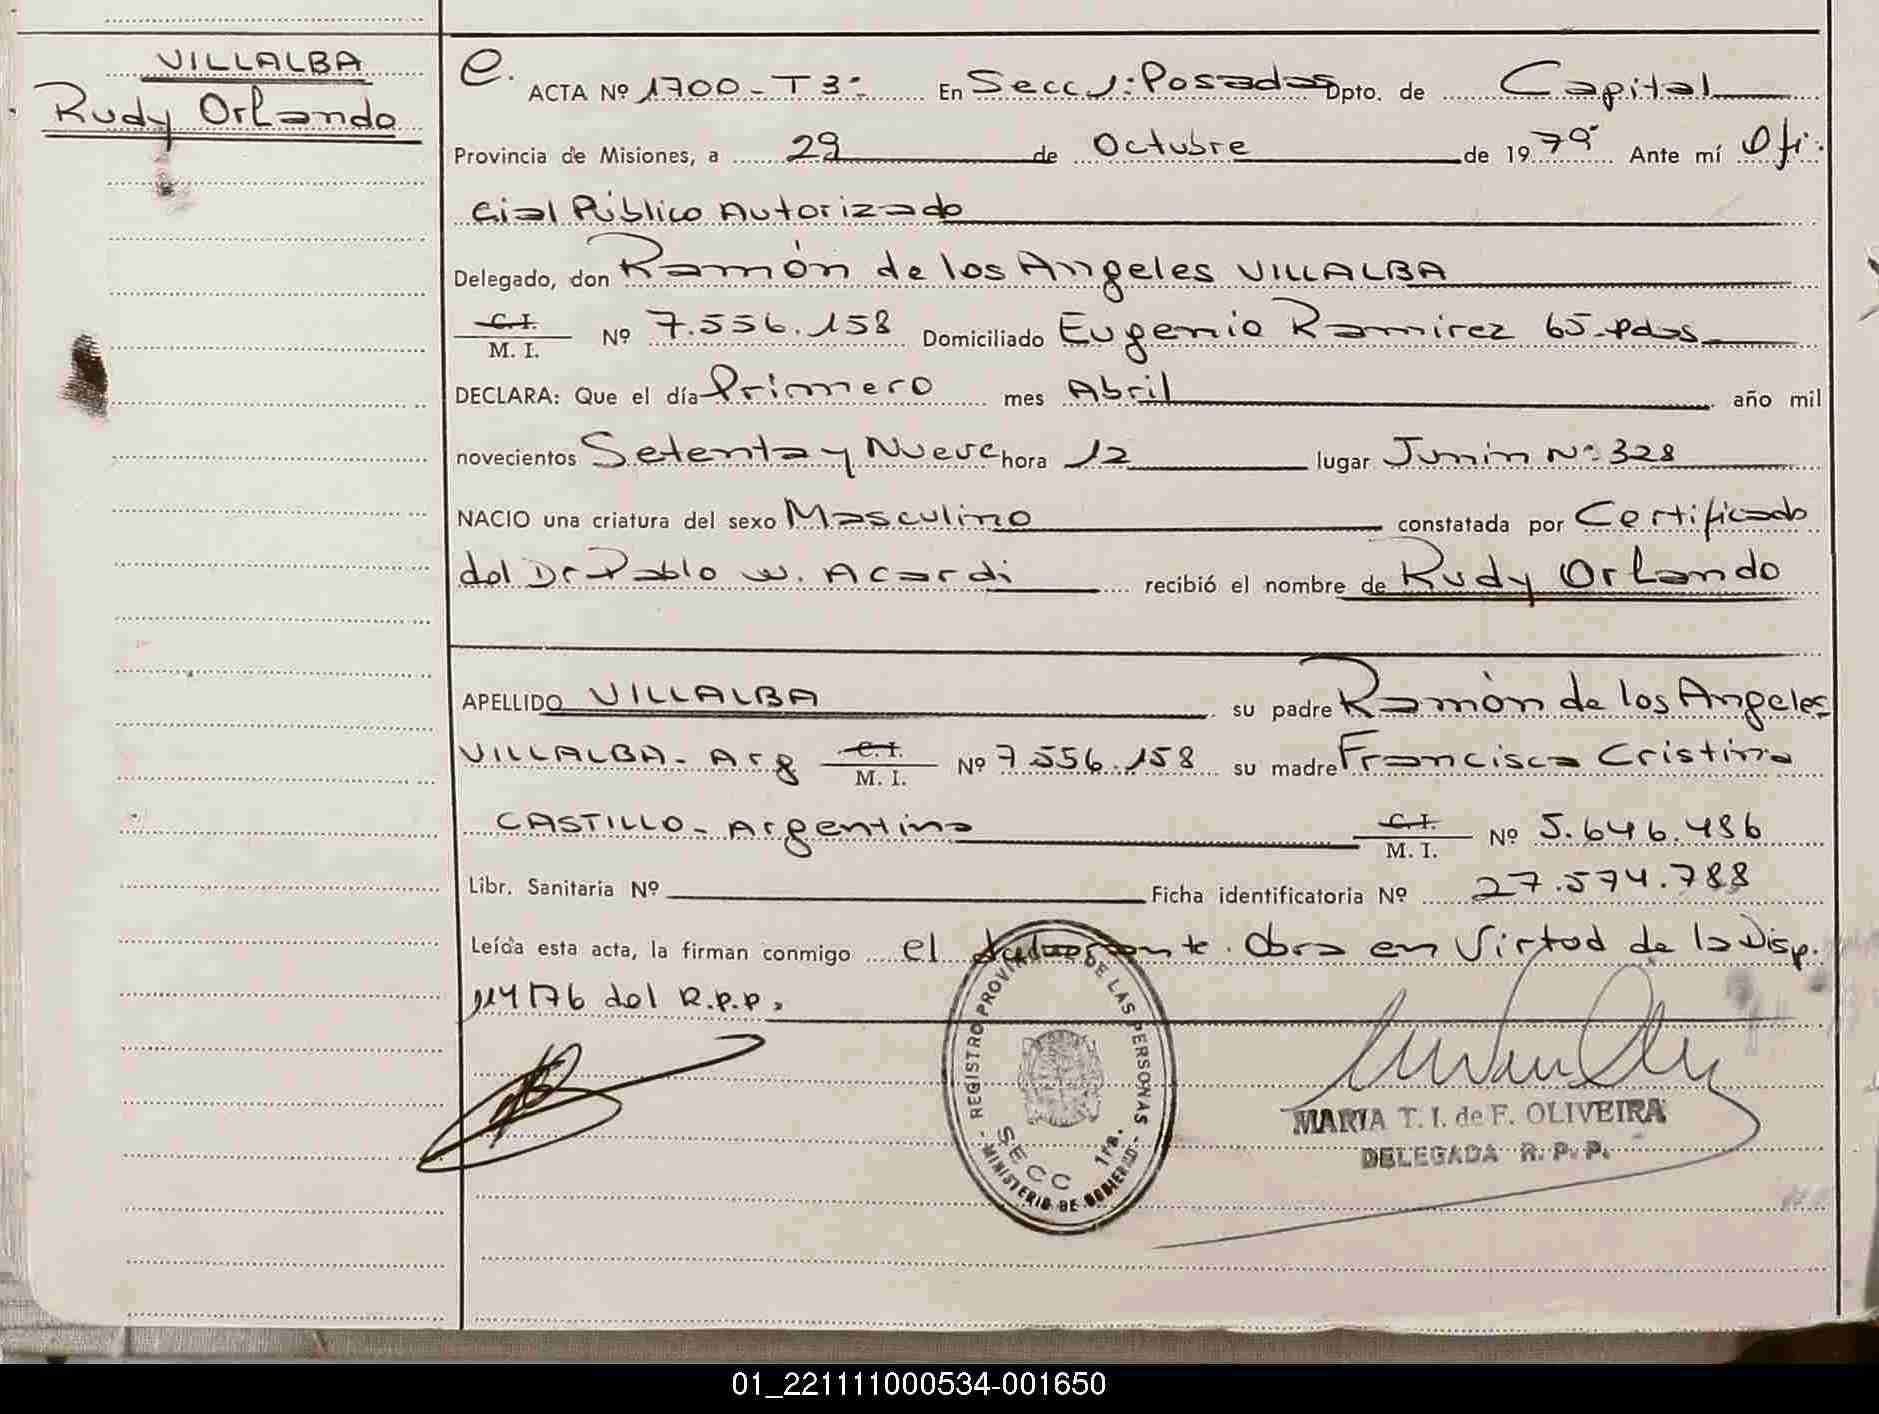 VILLALBA
Rudy Orlando
e.
ACTA Nº 1700 - T 3º En Secc 1: Posadas Dpto. de Capital
Provincia de Misiones, a 29 de Octubre de 1979 Ante mí Ofi-
cial Público Autorizado
Delegado, don Ramón de los Angeles VILLALBA
C.I.
M. I. Nº 7.556.158 Domiciliado Eugenio Ramirez 65-Pdas
DECLARA: Que el día Primero mes Abril año mil
novecientos Setenta y Nueve hora 12 lugar Junin Nº 328
NACIO una criatura del sexo Masculino constatada por Certificado
del Dr Pablo W. Acardi recibió el nombre de Rudy Orlando
APELLIDO VILLALBA su padre Ramón de los Angeles
VILLALBA - Arg C.I.
M. I. Nº 7.556.158 su madre Francisca Cristina
CASTILLO - Argentina C.I.
M. I. Nº 5.646.486
Libr. Sanitaria Nº Ficha identificatoria Nº 27.574.788
Leída esta acta, la firman conmigo el Obra en Virtud de la Disp.
114/76 del R.P.P.
REGISTRO PROVINCIAL DE LAS PERSONAS
SECC 1ra.
- MINISTERIO DE GOBIERNO -
MARIA T. I. de F. OLIVEIRA
DELEGADA R. P. P.
01_221111000534-001650